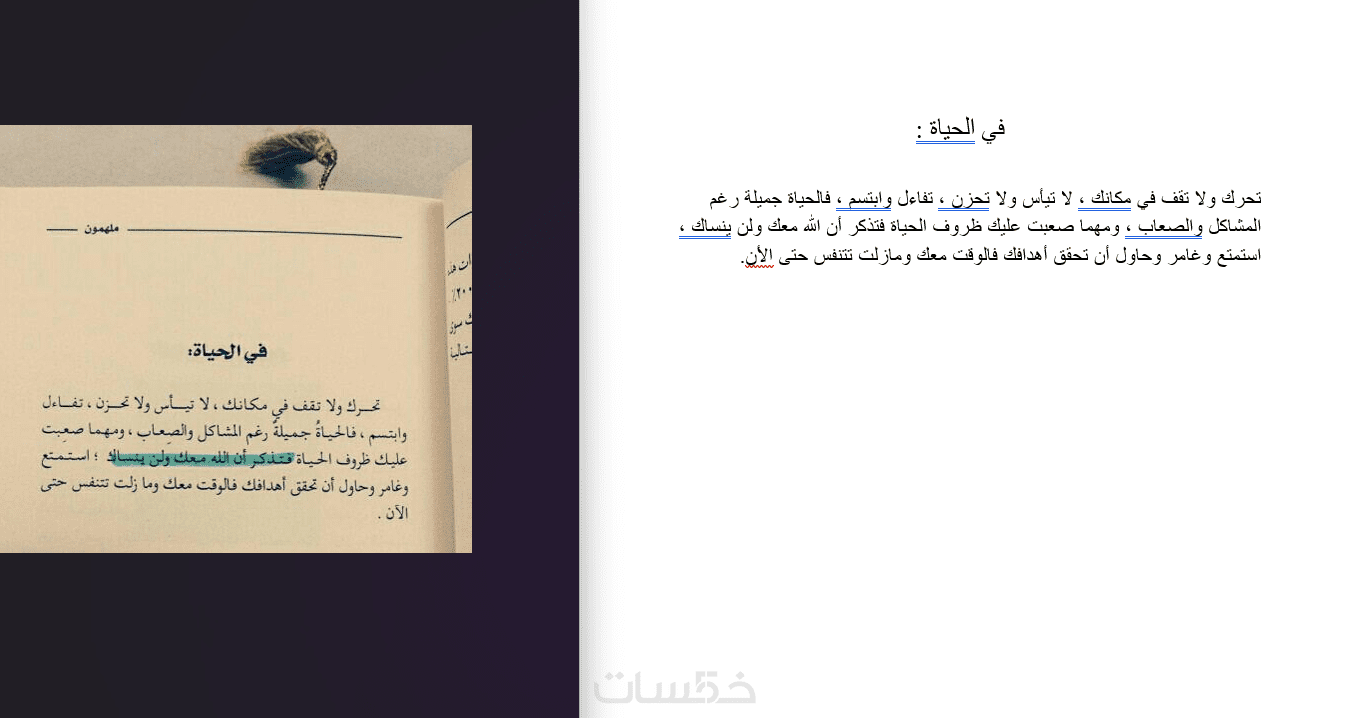 ملهمون
في الحياة:
تحرك ولا تقف في مكانك ، لا تيأس ولا تحزن ، تفاءل
وابتسم ، فالحياةُ جميلةٌ رغم المشاكل والصِعاب ، ومهما صعِبت
عليك ظروف الحياة فتذكر أن الله معك ولن ينساك ؛ استمتع
وغامر وحاول أن تحقق أهدافك فالوقت معك وما زلت تتنفس حتى
الآن .
ات هذه
٢٠٠٪
ك سوى
في الحياة :
تحرك ولا تقف في مكانك ، لا تيأس ولا تحزن ، تفاءل وابتسم ، فالحياة جميلة رغم
المشاكل والصعاب ، ومهما صعبت عليك ظروف الحياة فتذكر أن الله معك ولن ينساك ،
استمتع وغامر وحاول أن تحقق أهدافك فالوقت معك ومازلت تتنفس حتى الأن.
خمسات